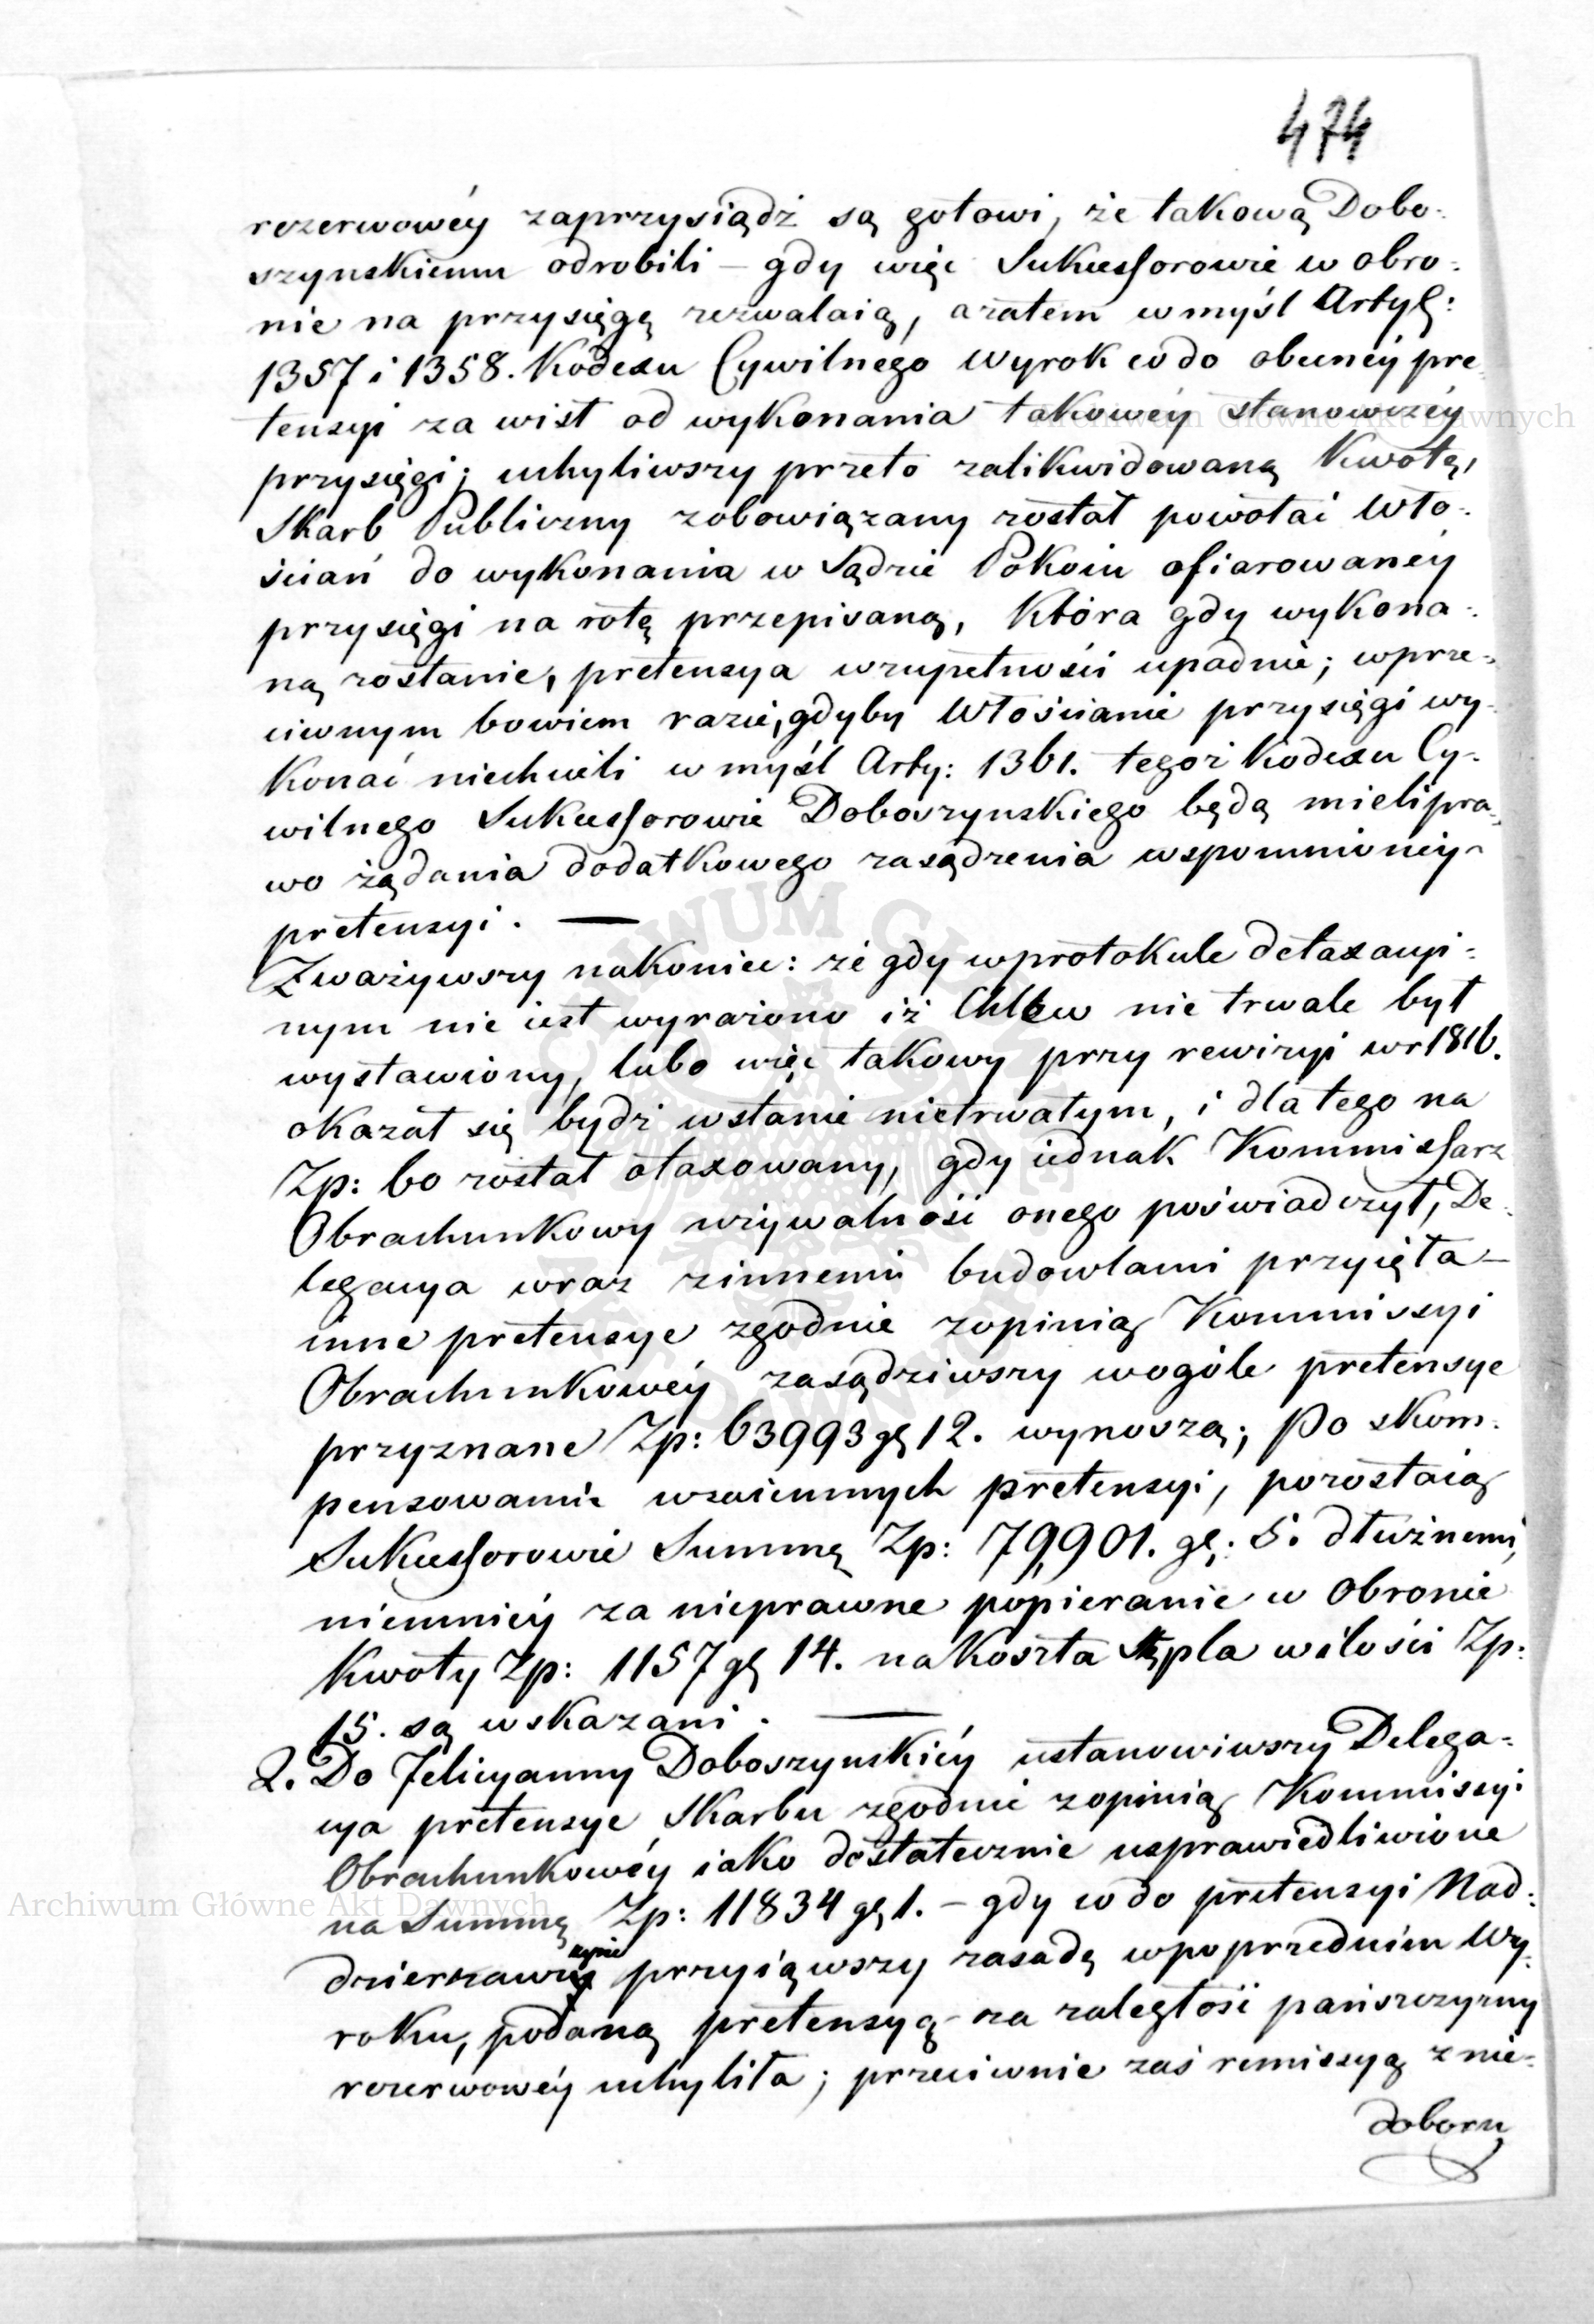 474
rezerwowéy zaprzysiądź są gotowi, że takową Dobo-
szynskiemu odrobili – gdy więc Sukcessorowie w obro-
nie na przysięgę zezwalaią, a zatem w myśl Artyk:
1357 i 1358. Kodexu Cywilnego Wyrok co do obecnéy pre-
tensyi zawisł od wykonania takowéy stanowczéy
przysięgi; uchyliwszy przeto zalikwidowaną Kwotę,
Skarb Publiczny zobowiązany został powołać Wło-
ścian do wykonania w Sądzie Pokoiu ofiarowanéy
przysięgi na rotę przepisaną, która gdy wykona-
ną zostanie, pretensya w zupełności upadnie; w prze-
ciwnym bowiem razie, gdyby Włościanie przysięgi wy-
konać niechcieli w myśl Arty: 1361. tegoż Kodexu Cy-
wilnego Sukcessorowie Doboszynskiego będą mieli pra-
wo żądania dodatkowego zasądzenia wspomnionéy
pretensyi. —
Zważywszy nakoniec: że gdy w protokule detaxacyi-
nym nie iest wyrażono iż Chlew nie trwale był
wystawiony, lubo więc takowy przy rewizyi w r 1816.
okazał się bydź w stanie nietrwałym, i dla tego na
Zp: 60 został otaxowany, gdy iednak Kommissarz
Obrachunkowy używalność onego poświadczył, De-
legacya wraz z innemi budowlami przyięła –
inne pretensye zgodnie z opinią Kommissyi
Obrachunkowéy zasądziwszy wogóle pretensye
przyznane Zp: 63993 gr 12. wynoszą; po skom-
pensowaniu wzaiemnych pretensyi, pozostaią
Sukcessorowie Summę Zp: 79,901. gr: 5. dłużnemi,
niemniéy za nieprawne popieranie w Obronie
Kwoty Zp: 1157 gr 14. na koszta Stępla w ilości Zp:
15. są wskazani. —
2. Do Felicyanny Doboszynskiéy ustanowiwszy Delega-
cya pretensye Skarbu zgodnie z opinią Kommissyi
Obrachunkowéy iako dostatecznie usprawiedliwione
na Summę Zp: 11834 gr 1. – gdy co do pretensyi Nad-
dzierzawy przyiąwszy zasadę w poprzednim Wy-
roku, podaną pretensyą za zaległość pańszczyzny
rezerwowéy uchyliła; przeciwnie zaś remissyą z nie-
doboru
Archiwum Główne Akt Dawnych
Archiwum Główne Akt Dawnych